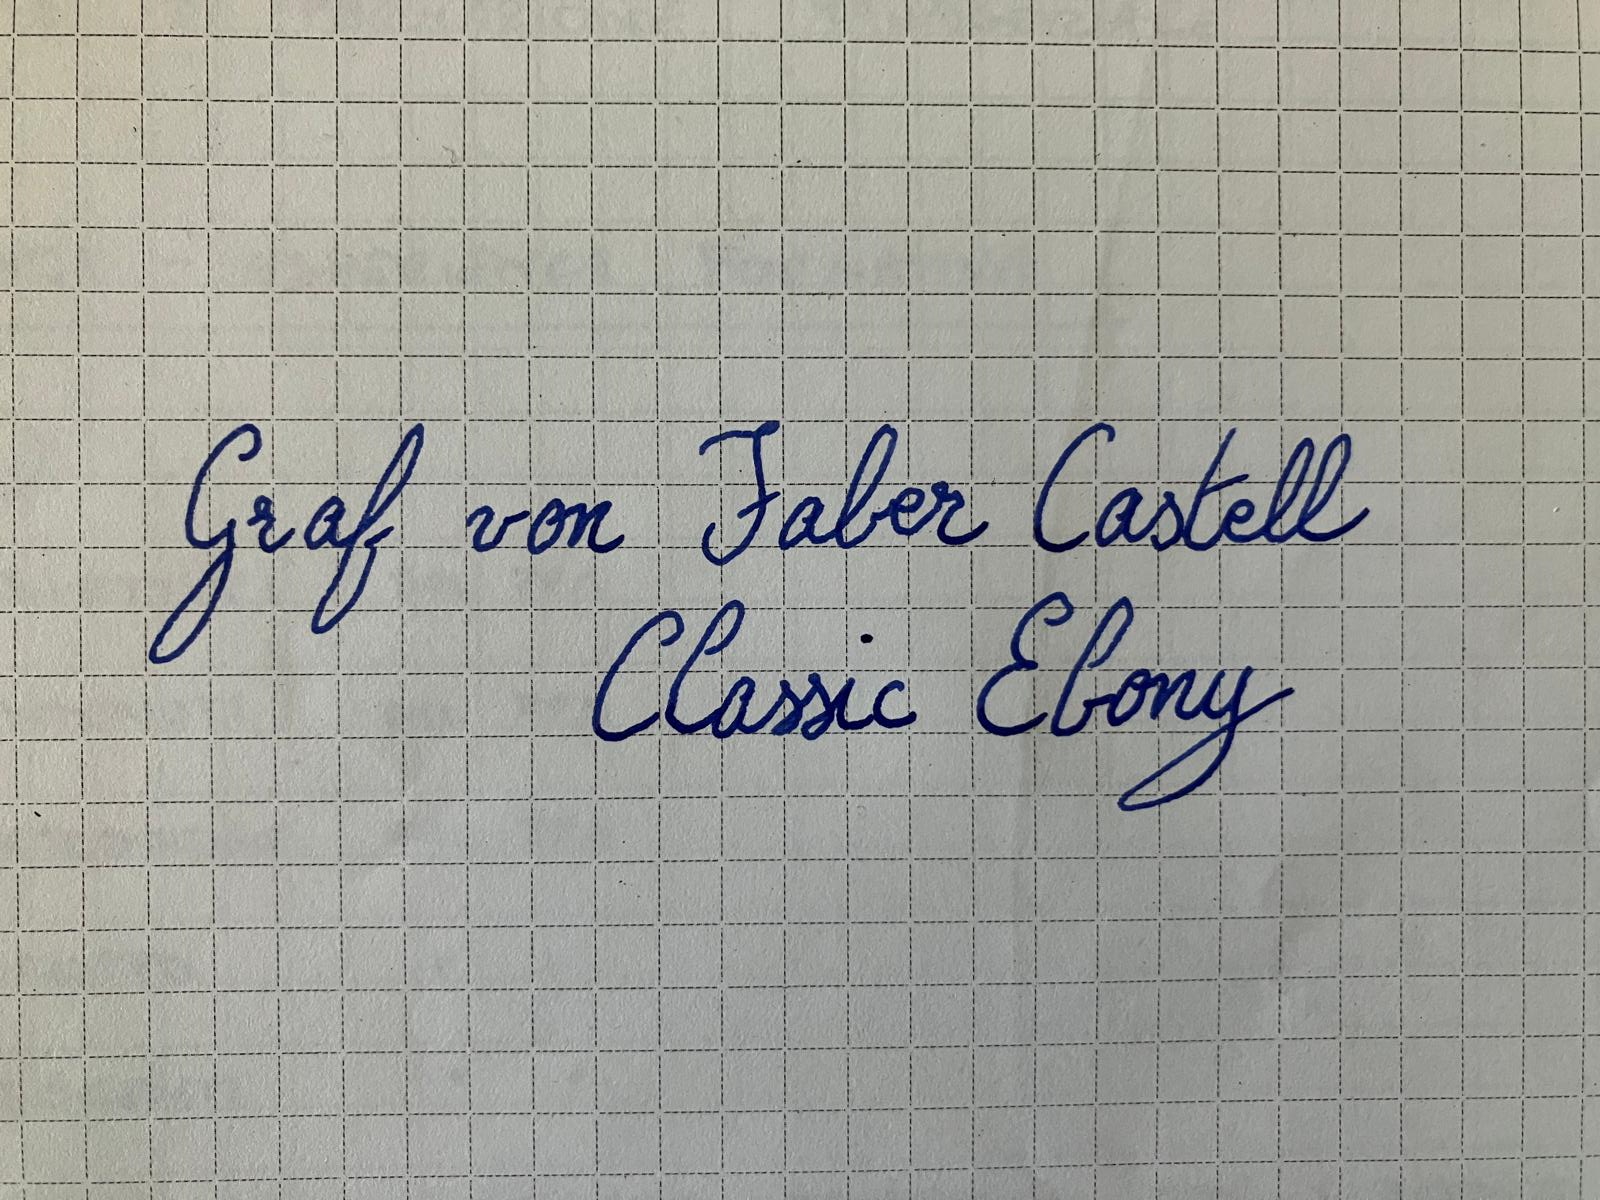 Graf von Faber Castell
Classic Ebony